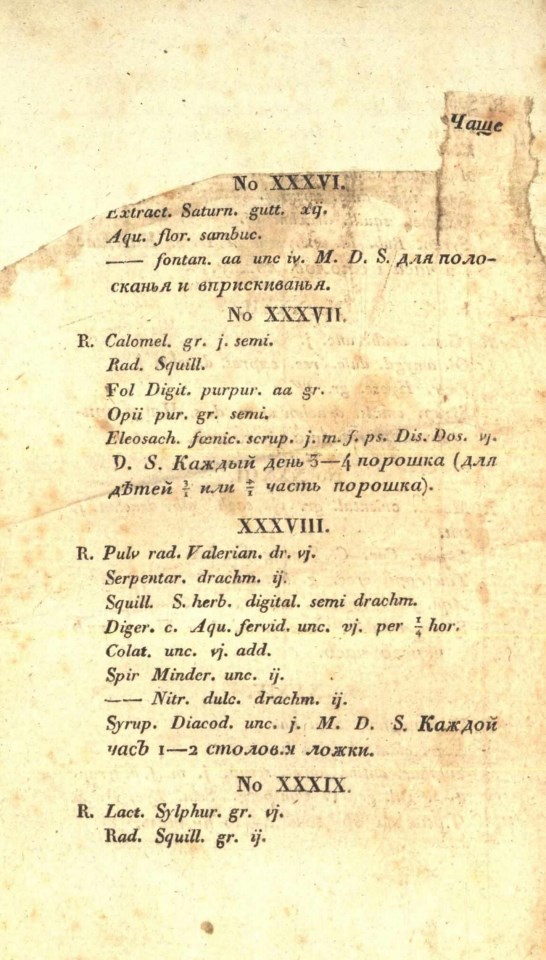 Чаще
No XXXVI.
Extract. Saturn. gutt. xij.
Aqu. flor. sambuc.
—— fontan. aa unc iv. M. D. S. для поло-
сканья и вприскиванья.
No XXXVII.
R. Calomel. gr. j. semi.
Rad. Squill.
Fol Digit. purpur. aa gr.
Opii pur. gr. semi.
Eleosach. fœnic. scrup. j. m. f. ps. Dis. Dos. vj.
D. S. Каждый день 3—4 порошка (для
дѣтей или часть порошка).
XXXVIII.
R. Pulv rad. Valerian. dr. vj.
Serpentar. drachm. ij.
Squill. S. herb. digital. semi drachm.
Diger. c. Aqu. fervid. unc. vj. per ¼ hor.
Colat. unc. vj. add.
Spir Minder. unc. ij.
—— Nitr. dulc. drachm. ij.
Syrup. Diacod. unc. j. M. D. S. Каждой
часЪ 1—2 ложки.
No XXXIX.
R. Lact. Sylphur. gr. vj.
Rad. Squill. gr. ij.